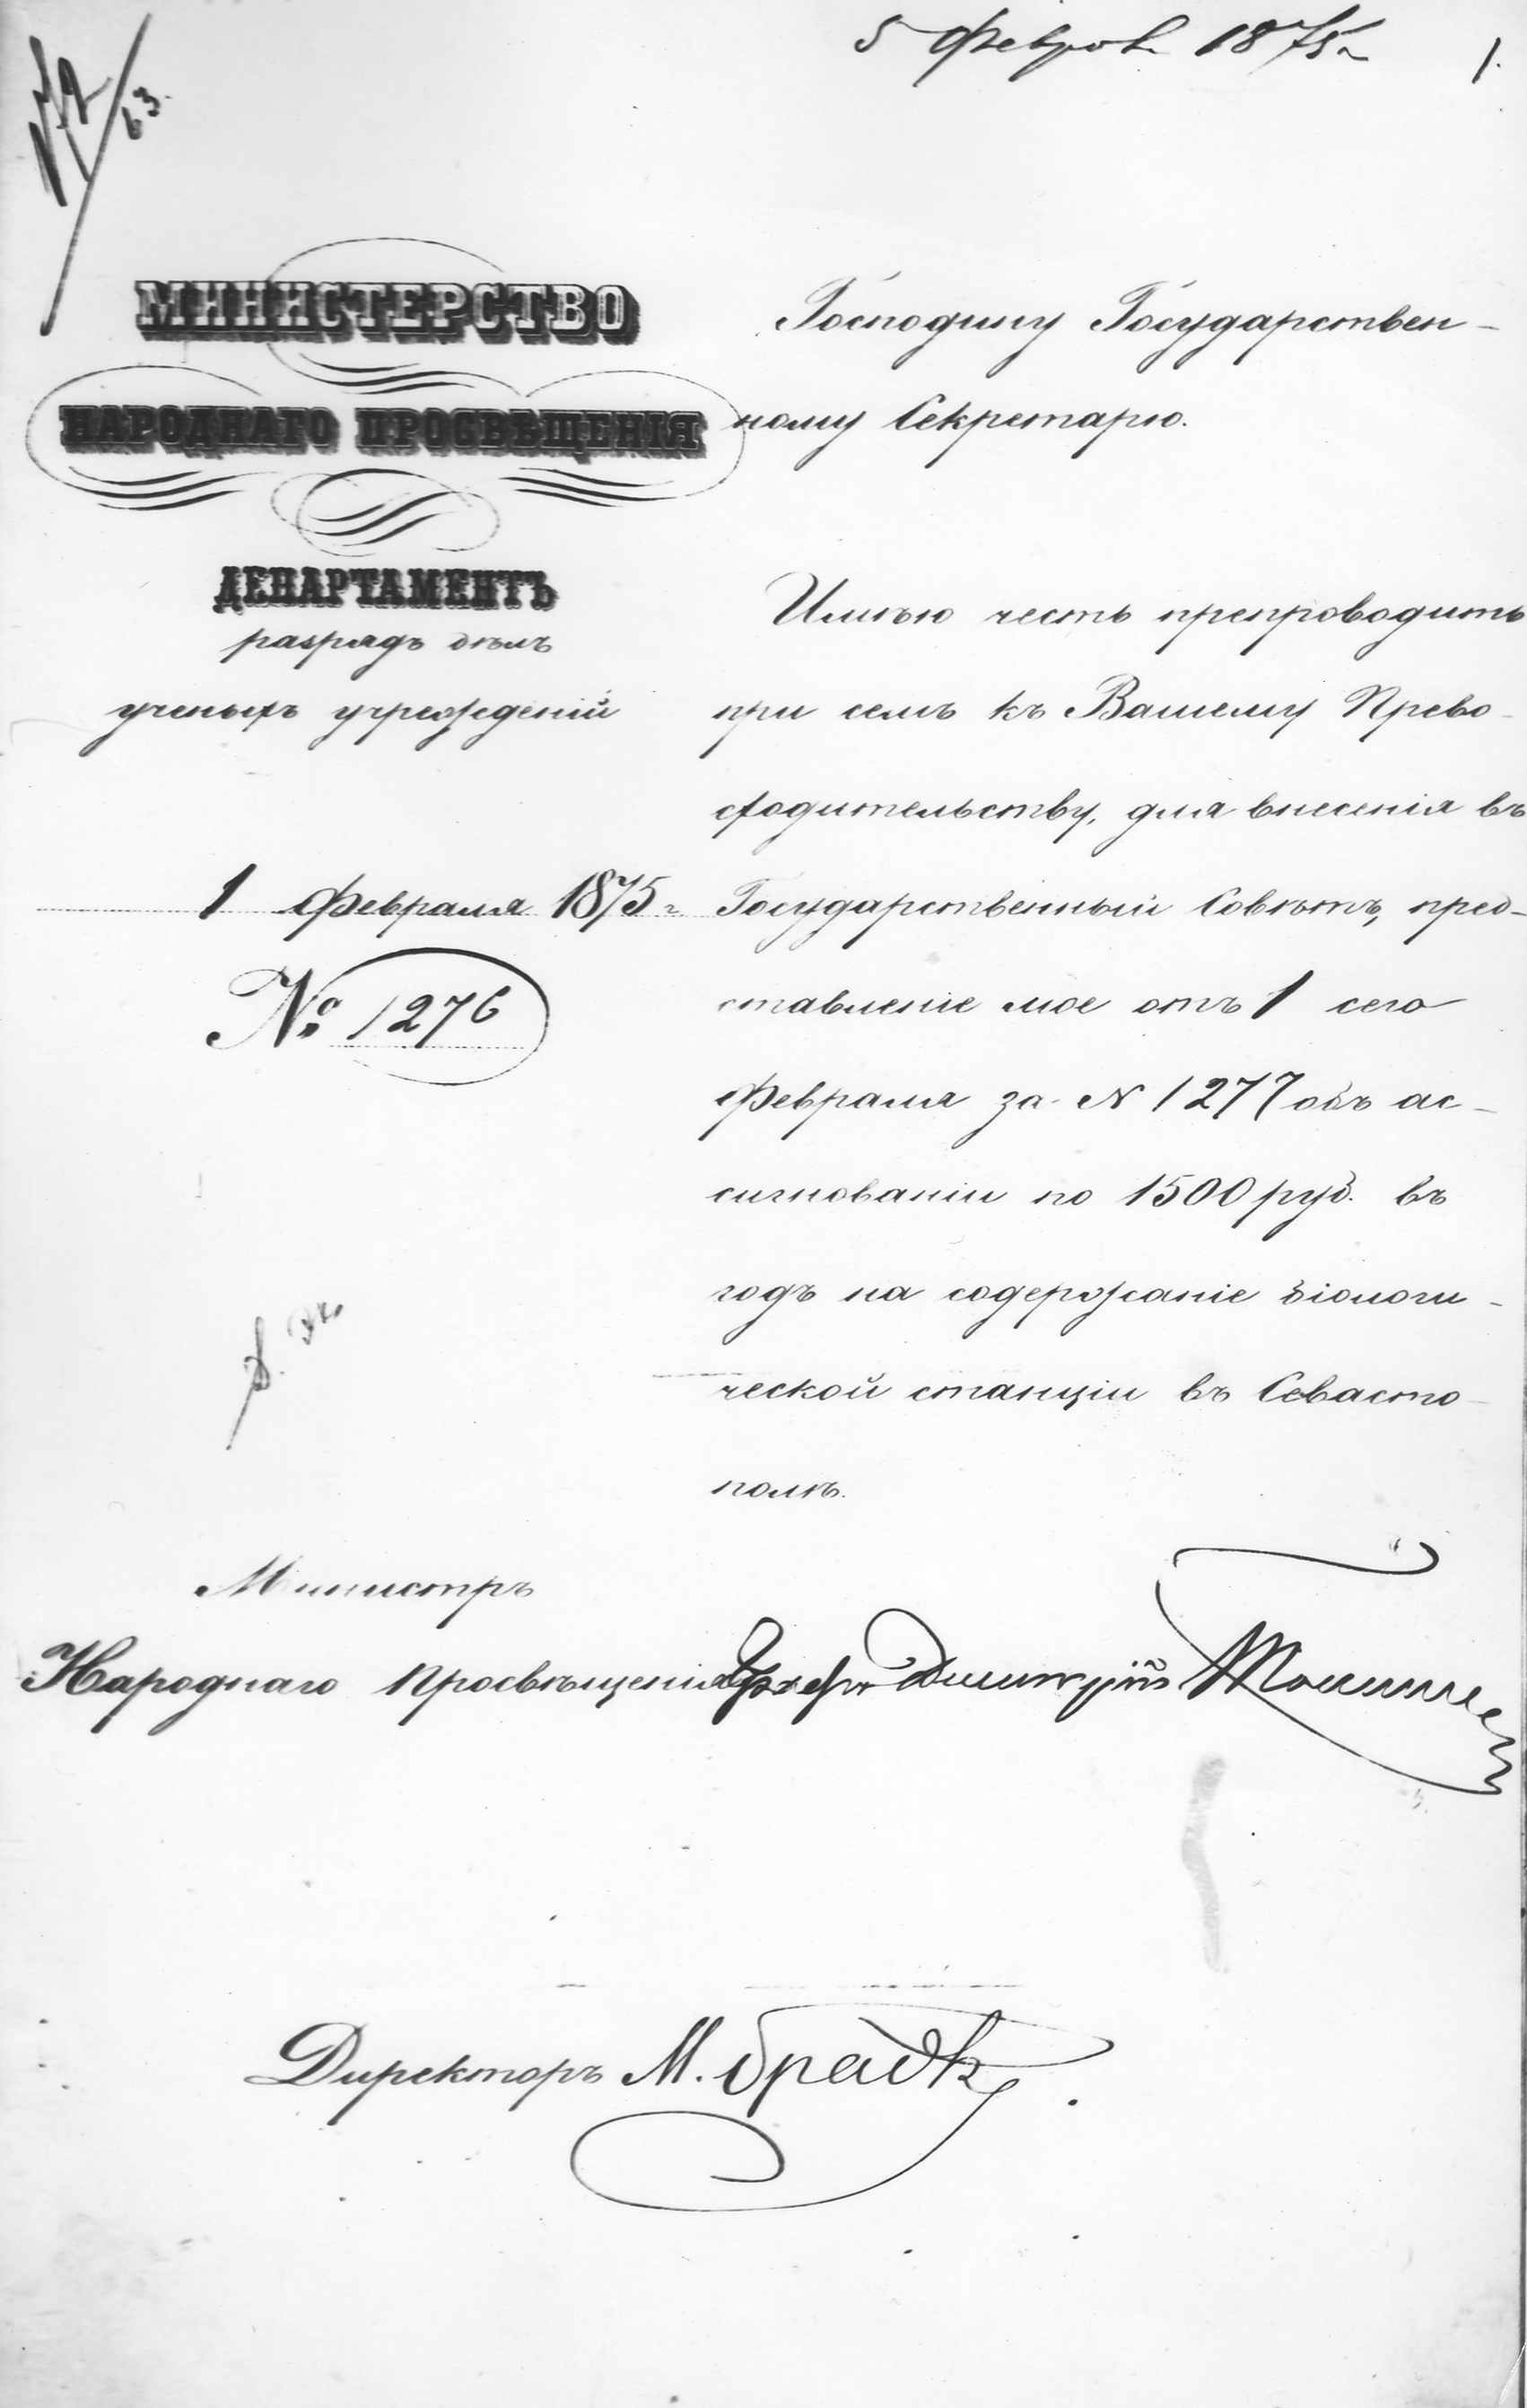 5 Феврал 1875 г.
1.
63.
МИНИСТЕРСТВО
НАРОДНАГО ПРОСВѢЩЕНІЯ
ДЕПАРТАМЕНТЪ
разрядъ дѣлъ
ученыхъ учрежденій
1 Февраля 1875 г.
№ 1276
Господину Государствен-
ному Секретарю.
Имѣю честь препроводить
при семъ къ Вашему Прево-
сходительству, для внесенія въ
Государственный Совѣтъ, пред-
ставленіе мое отъ 1 сего
Февраля за N 1277 объ ас-
сигнованіи по 1500 руб. въ
годъ на содержаніе біологи-
ческой станціи въ Севасто-
полѣ.
Министръ
Народнаго Просвѣщенія Графъ Дмитрій Толстой
Директоръ М. Брадке.